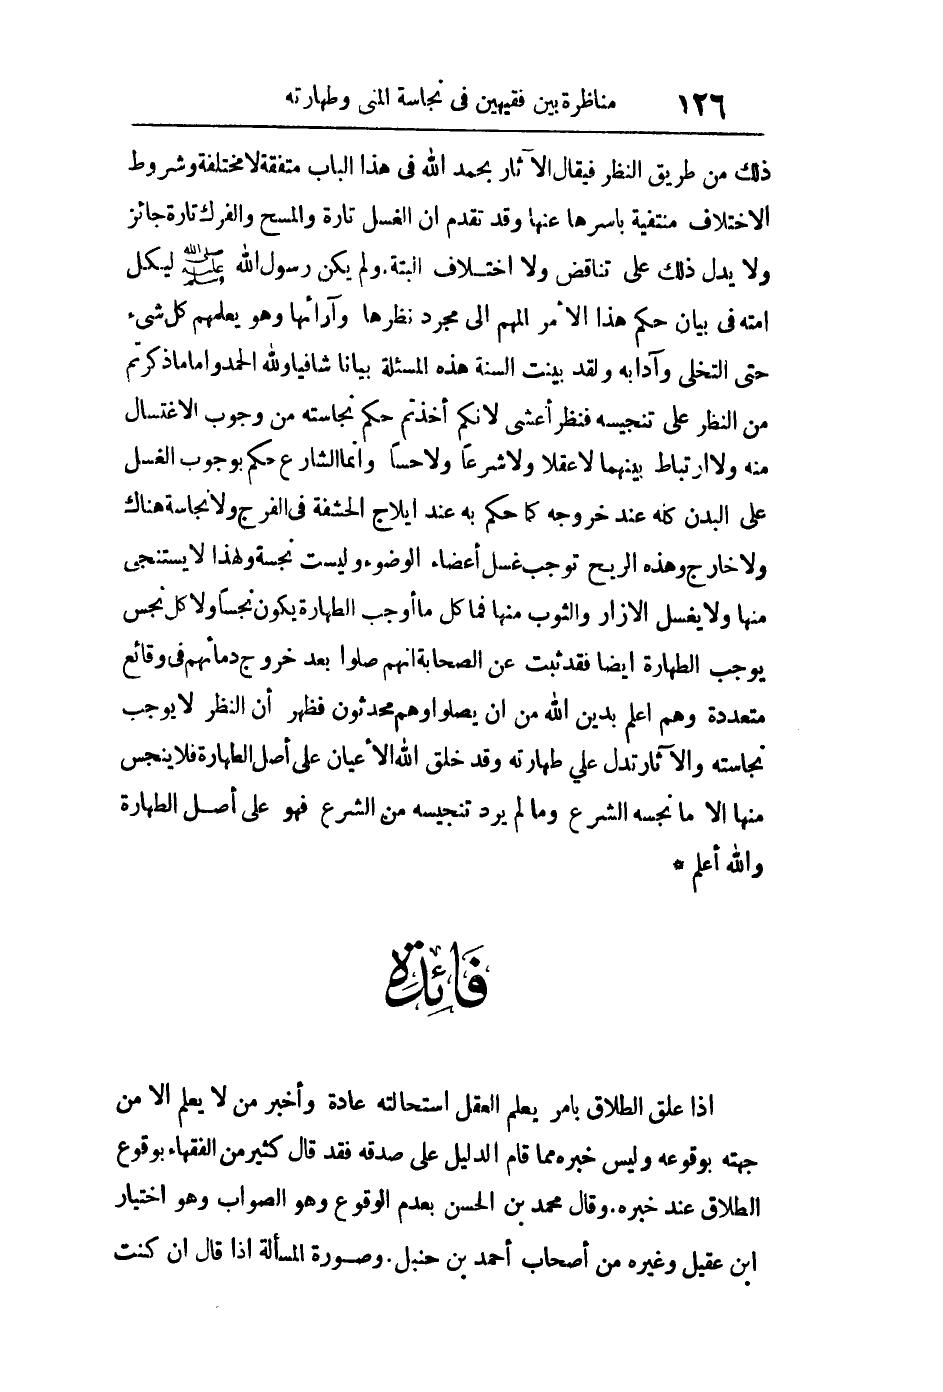 ١٢٦ مناظرة بين فقيهين فى نجاسة المنى وطهارته
ذلك من طريق النظر فيقال الآثار بحمد الله فى هذا الباب متفقة لا مختلفة وشروط
الاختلاف منتفية باسرها عنها وقد تقدم ان الغسل تارة والمسح والفرك تارة جائز
ولا يدل ذلك على تناقض ولا اختلاف البتة. ولم يكن رسول الله ﷺ ليكل
امته فى بيان حكم هذا الأمر المهم الى مجرد نظرها وآرائها وهو يعلمهم كل شىء
حتى التخلى وآدابه ولقد بينت السنة هذه المسئلة بيانا شافيا ولله الحمد واما ما ذكرتم
من النظر على تنجيسه فنظر أعشى لانكم أخذتم حكم نجاسته من وجوب الاغتسال
منه ولا ارتباط بينهما لا عقلا ولا شرعاً ولا حساً وانما الشارع حكم بوجوب الغسل
على البدن كله عند خروجه كما حكم به عند ايلاج الحشفة فى الفرج ولا نجاسة هناك
ولا خارج وهذه الريح توجب غسل أعضاء الوضوء وليست نجسة ولهذا لا يستنجى
منها ولا يغسل الازار والثوب منها فما كل ما أوجب الطهارة يكون نجساً ولا كل نجس
يوجب الطهارة ايضا فقد ثبت عن الصحابة انهم صلوا بعد خروج دمائهم فى وقائع
متعددة وهم اعلم بدين الله من ان يصلوا وهم محدثون فظهر أن النظر لا يوجب
نجاسته والآثار تدل علي طهارته وقد خلق الله الأعيان على أصل الطهارة فلا ينجس
منها الا ما نجسه الشرع وما لم يرد تنجيسه من الشرع فهو على أصل الطهارة
والله أعلم *
فَائِدَة
اذا علق الطلاق بامر يعلم العقل استحالته عادة وأخبر من لا يعلم الا من
جهته بوقوعه وليس خبره مما قام الدليل على صدقه فقد قال كثير من الفقهاء بوقوع
الطلاق عند خبره. وقال محمد بن الحسن بعدم الوقوع وهو الصواب وهو اختيار
ابن عقيل وغيره من أصحاب أحمد بن حنبل. وصورة المسألة اذا قال ان كنت